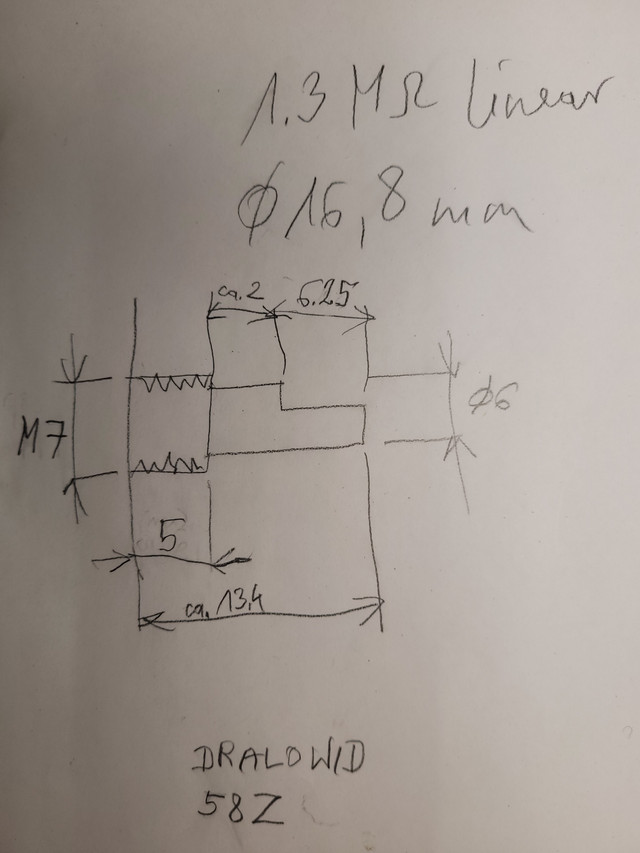 1.3 MΩ linear
ϕ16,8 mm
ca.2
6.25
M7
ϕ6
5
ca. 13,4
DRALOWID
58Z